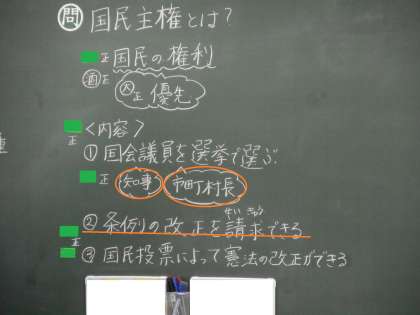 問 国民主権とは？
正 国民の権利
酒正 囚正 優先
正 〈内容〉
① 国会議員を選挙で選ぶ
正 知事 市町村長
せいきゅう
② 条例の改正を請求できる
正
③ 国民投票によって憲法の改正ができる